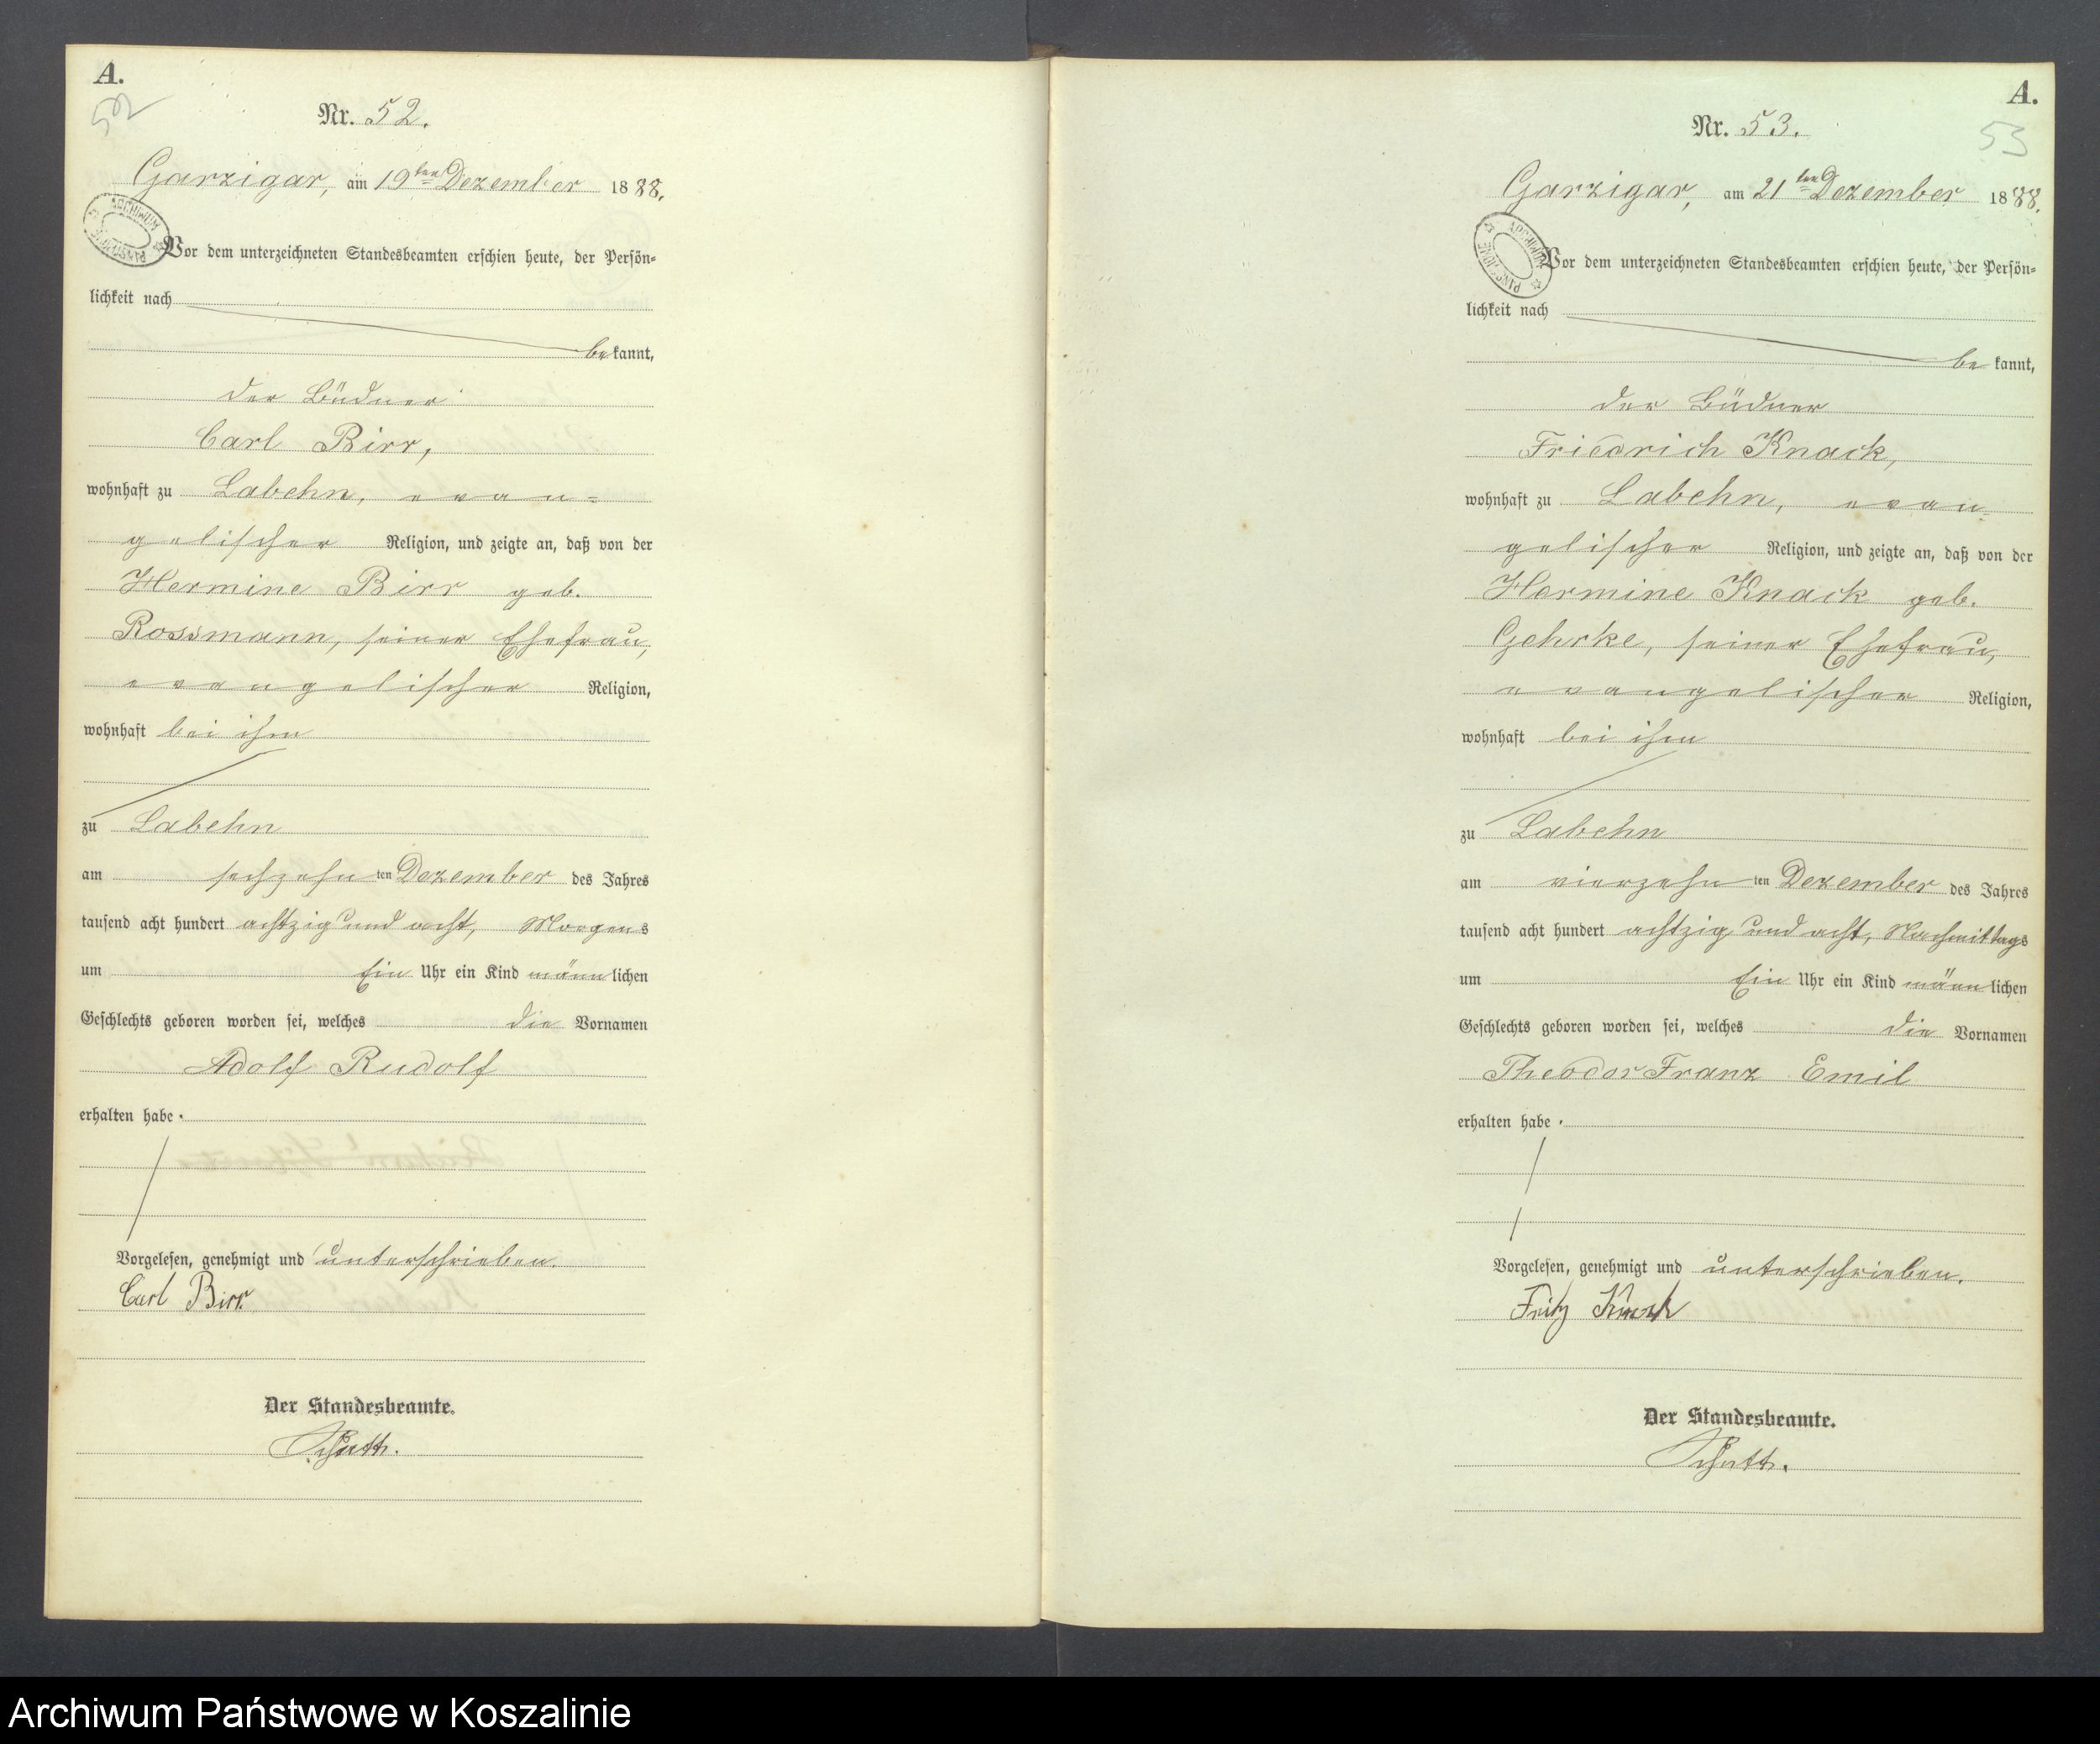 A.
52
Nr. 52.
Garzigar, am 19ten Dezember 1888.
ARCHIWUM PAŃSTWOWE
Vor dem unterzeichneten Standesbeamten erschien heute, der Persön=
lichkeit nach
bekannt,
der Büdner
Carl Birr,
wohnhaft zu Labehn, evan=
gelischer Religion, und zeigte an, daß von der
Hermine Birr geb.
Rossmann, seiner Ehefrau,
evangelischer Religion,
wohnhaft bei ihm
zu Labehn
am sechzehnten Dezember des Jahres
tausend acht hundert achtzig und acht, Morgens
um Ein Uhr ein Kind männlichen
Geschlechts geboren worden sei, welches die Vornamen
Adolf Rudolf
erhalten habe.
Vorgelesen, genehmigt und unterschrieben.
Carl Birr
Der Standesbeamte.
A.
53
Nr. 53.
Garzigar, am 21ten Dezember 1888.
ARCHIWUM PAŃSTWOWE
Vor dem unterzeichneten Standesbeamten erschien heute, der Persön=
lichkeit nach
bekannt,
der Büdner
Friedrich Knack,
wohnhaft zu Labehn, evan=
gelischer Religion, und zeigte an, daß von der
Hermine Knack geb.
Gehrke, seiner Ehefrau,
evangelischer Religion,
wohnhaft bei ihm
zu Labehn
am vierzehnten Dezember des Jahres
tausend acht hundert achtzig und acht, Nachmittags
um Ein Uhr ein Kind männlichen
Geschlechts geboren worden sei, welches die Vornamen
Theodor Franz Emil
erhalten habe.
Vorgelesen, genehmigt und unterschrieben.
Fritz Knack
Der Standesbeamte.
Archiwum Państwowe w Koszalinie